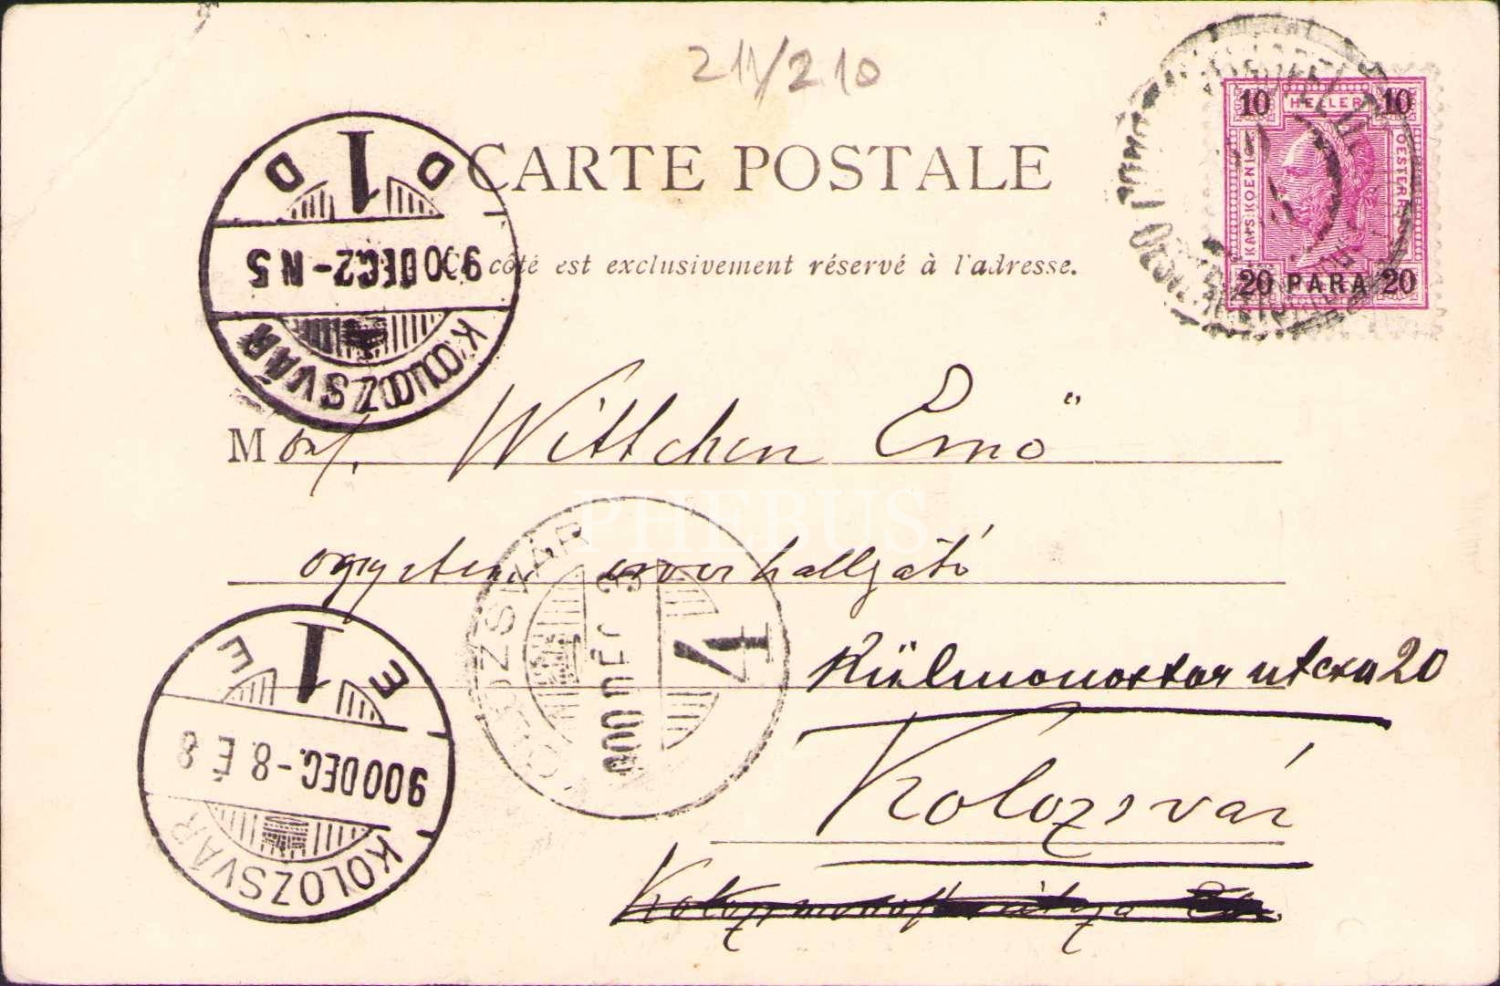 211/210
CARTE POSTALE
Ce côté est exclusivement réservé à l'adresse.
10 HELLER 10
KAIS. KOENIGL. OESTERR.
20 PARA 20
D 1 D
900 DEC 2 - N 5
KOLOZSVÁR
M Wittchen Ernő
egyetemi orvoshallgató
Külmonostor utcza 20
Kolozsvár
KOLOZSVÁR
900 DÉC 3
4
E 1 E
900 DEC. - 8. É 8
KOLOZSVÁR
PHEBUS